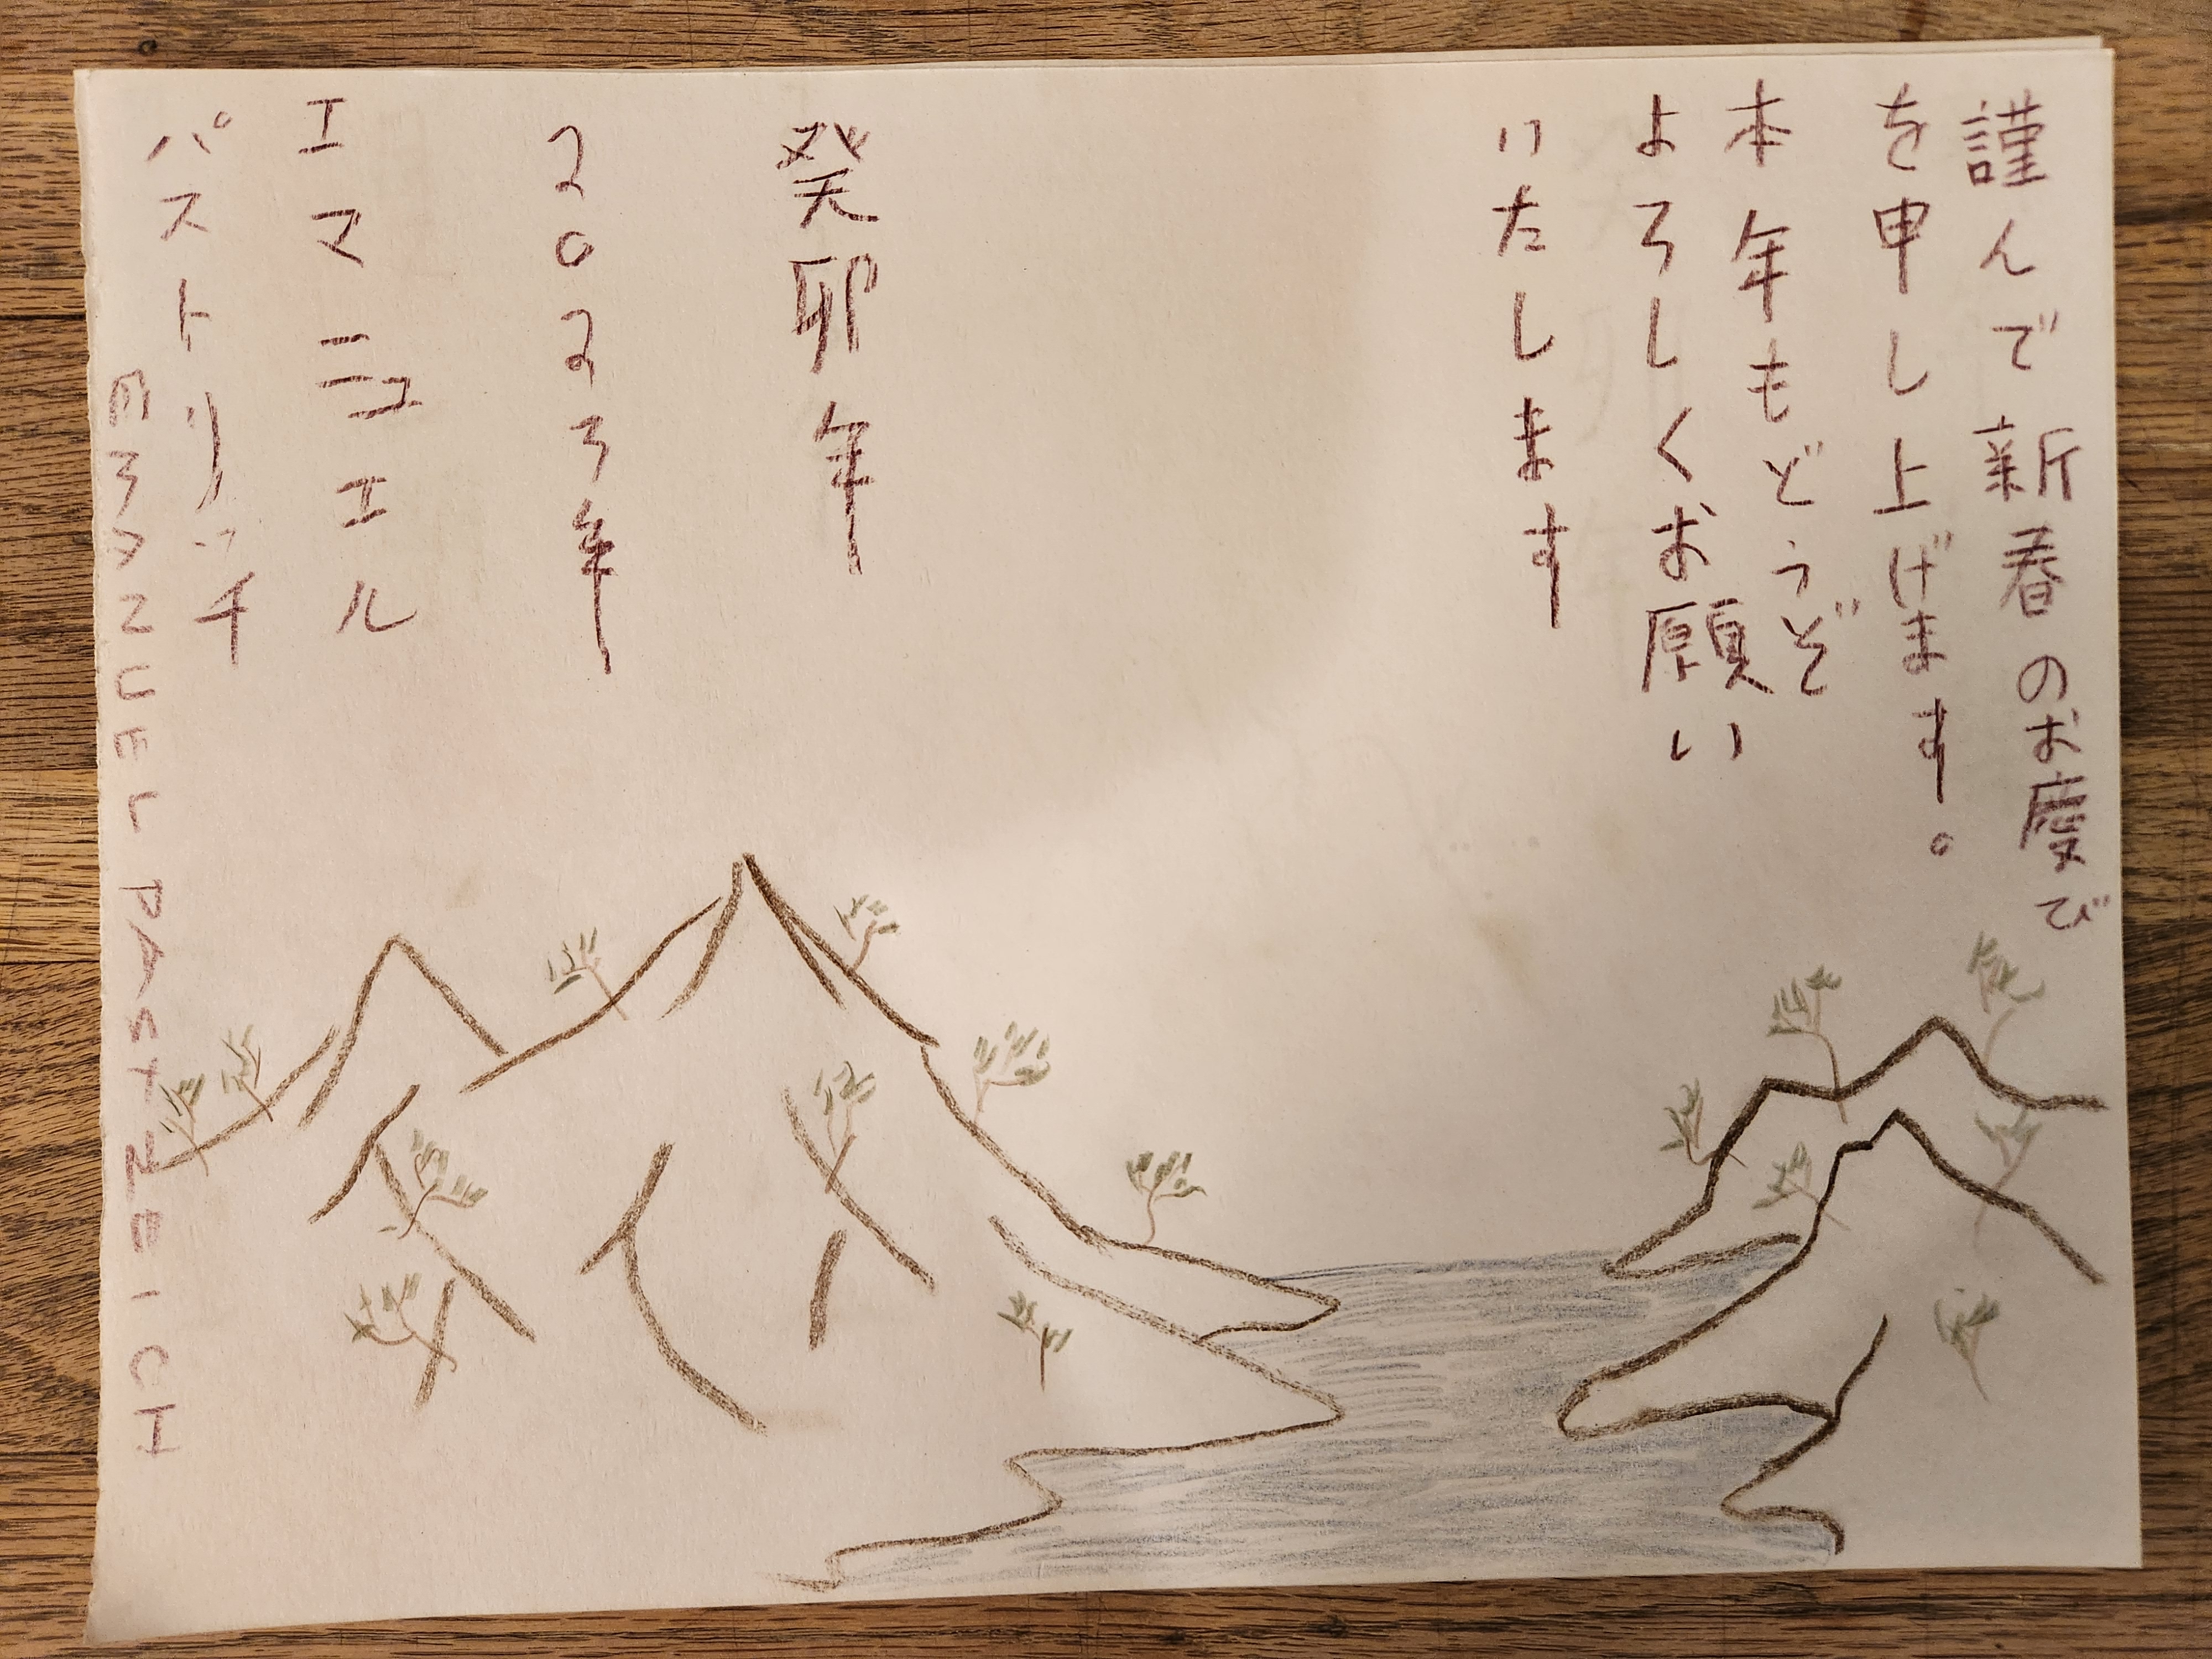 謹んで新春のお慶び
を申し上げます。
本年もどうぞ
よろしくお願い
いたします
癸卯年
2023年
エマニュエル
パストリッチ
EMANUEL PASTREICH